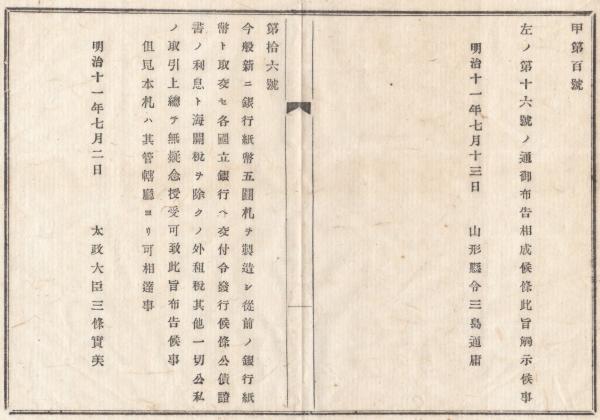 甲第百號
左ノ第十六號ノ通御布告相成候條此旨觸示候事
明治十一年七月十三日　山形縣令三島通庸
第拾六號
今般新ニ銀行紙幣五圓札ヲ製造シ從前ノ銀行紙
幣ト取交セ各國立銀行ヘ交付令發行候條公債證
書ノ利息ト海關税ヲ除クノ外租税其他一切公私
ノ取引上總テ無疑念授受可致此旨布告候事
但見本札ハ其管轄廳ヨリ可相達事
明治十一年七月二日　太政大臣三條實美